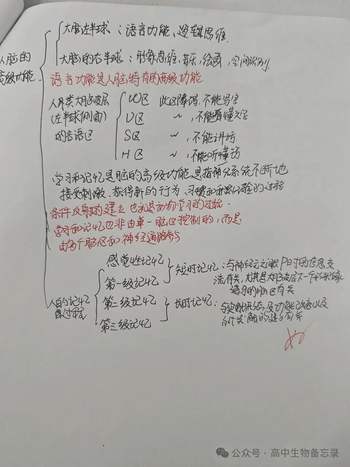 人脑的
高级功能
大脑左半球：语言功能、逻辑思维
大脑的右半球：形象思维，音乐，绘画，空间识别
语言功能是人脑特有的高级功能
人类大脑皮层
(左半球侧面)
的言语区
W区 此区障碍，不能写字
V区 〃，不能看懂文字
S区 〃，不能讲话
H区 〃，不能听懂话
学习和记忆是脑的高级功能是指神经系统不断地
接受刺激，获得新的行为、习惯和积累经验的过程
条件反射的建立也就是动物学习的过程
学习和记忆也非由单一脑区控制的，而是
由多个脑区和神经通路参与
人的记忆
感觉性记忆
第一级记忆
第二级记忆
第三级记忆
短时记忆：与神经元之间即时的信息交
流有关，尤其是大脑皮层下一个形状像
海马的脑区有关
长时记忆：与突触形态及功能改变以及
新突触的建立有关
公众号·高中生物备忘录